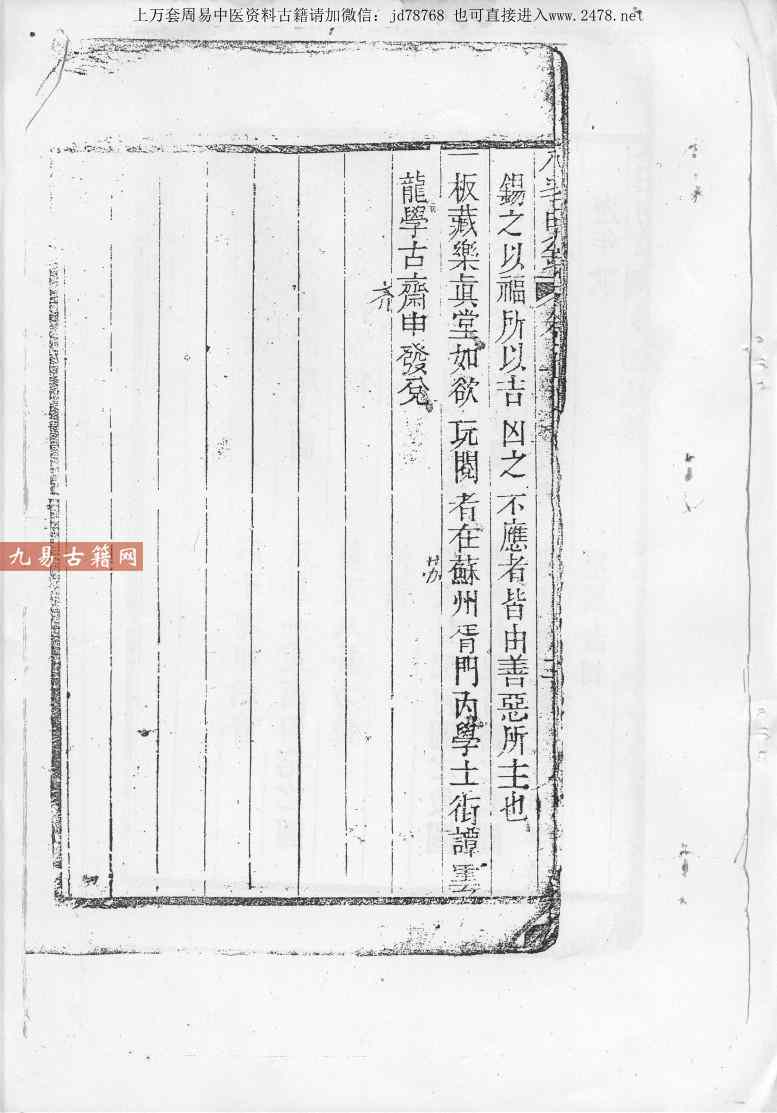 上万套周易中医资料古籍请加微信：jd78768 也可直接进入www.2478.net
錫之以福所以吉凶之不應者皆由善惡所主也
一板藏樂真堂如欲玩閱者在蘇州胥門內學士街譚雲
龍學古齋申發兌
齐
苏
九易古籍网